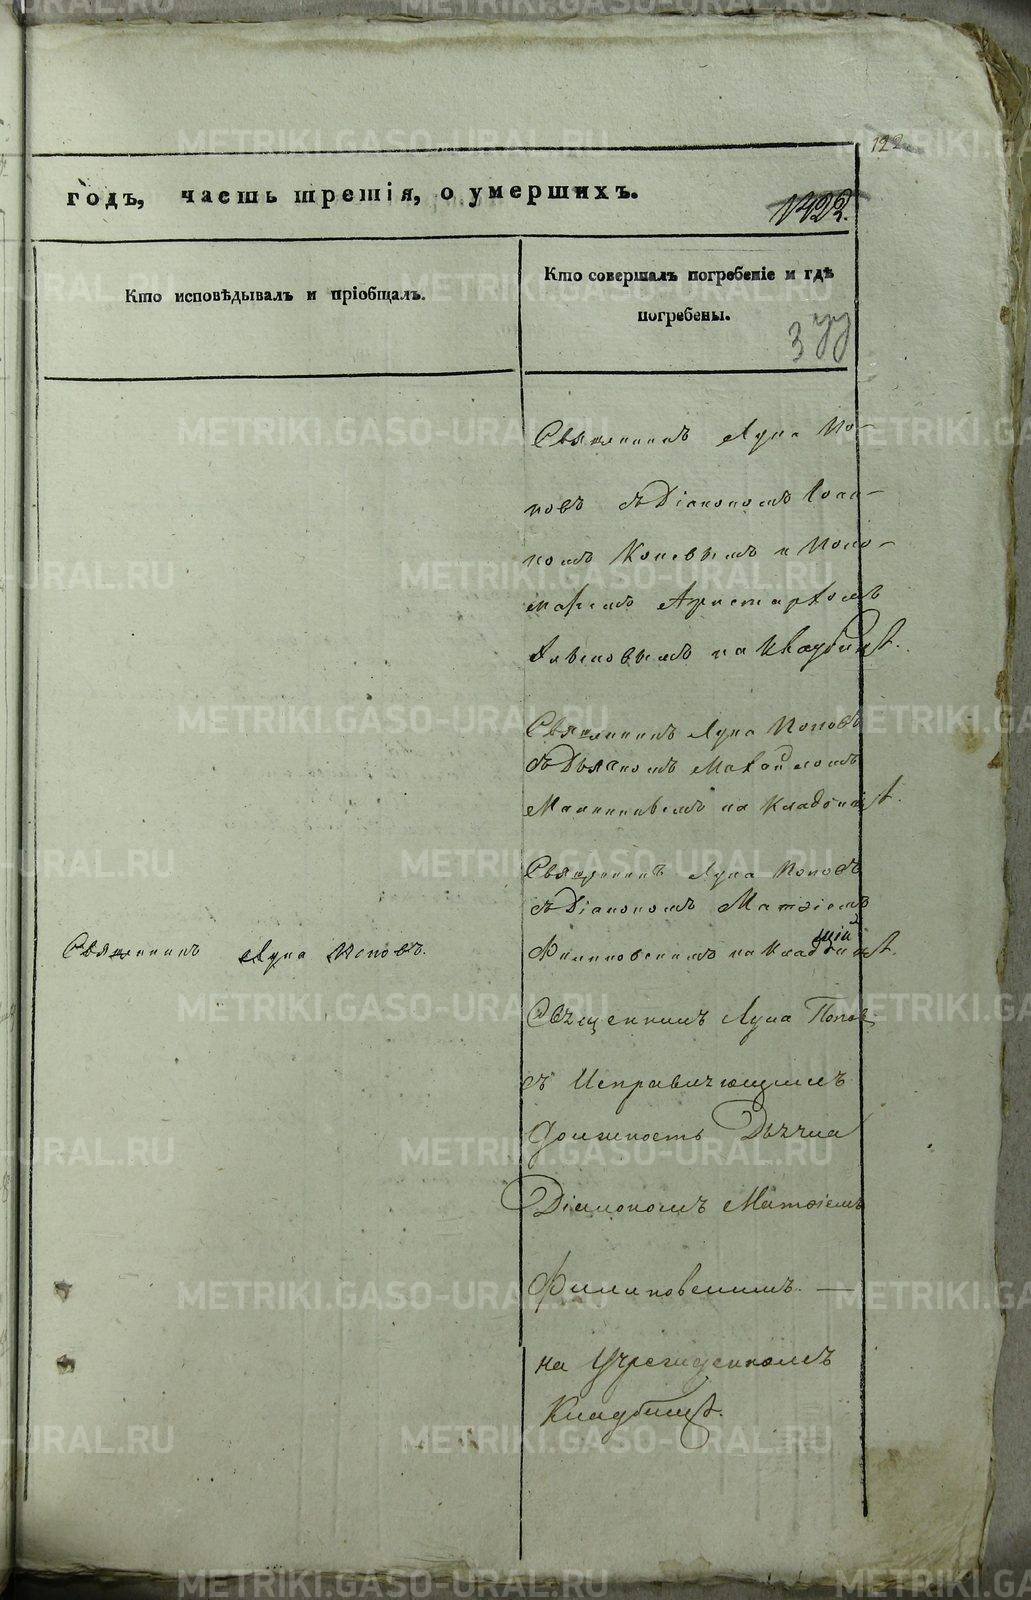 122
годъ, часть третія, о умершихъ.
1422.
Кто исповѣдывалъ и пріобщалъ.
Кто совершалъ погребеніе и гдѣ
погребены.
Священникъ Лука По-
повъ съ Діакономъ Іоан-
номъ Коневымъ и Поно-
маремъ Аристархомъ
на Кладбищѣ.
Священникъ Лука Поповъ
съ Дьячкомъ Михайломъ
на Кладбищѣ.
Священникъ Лука Поповъ
съ Діакономъ Матѳіемъ
Священникъ Лука Поповъ.
Филиповскимъ на Кладбищѣ.
Священникъ Лука Попов
съ Исправляющимъ
Должность Дьячка
Діакономъ Матѳіемъ
Филиповскимъ. —
на Учрежденномъ
Кладбищѣ.
METRIKI.GASO-URAL.RU